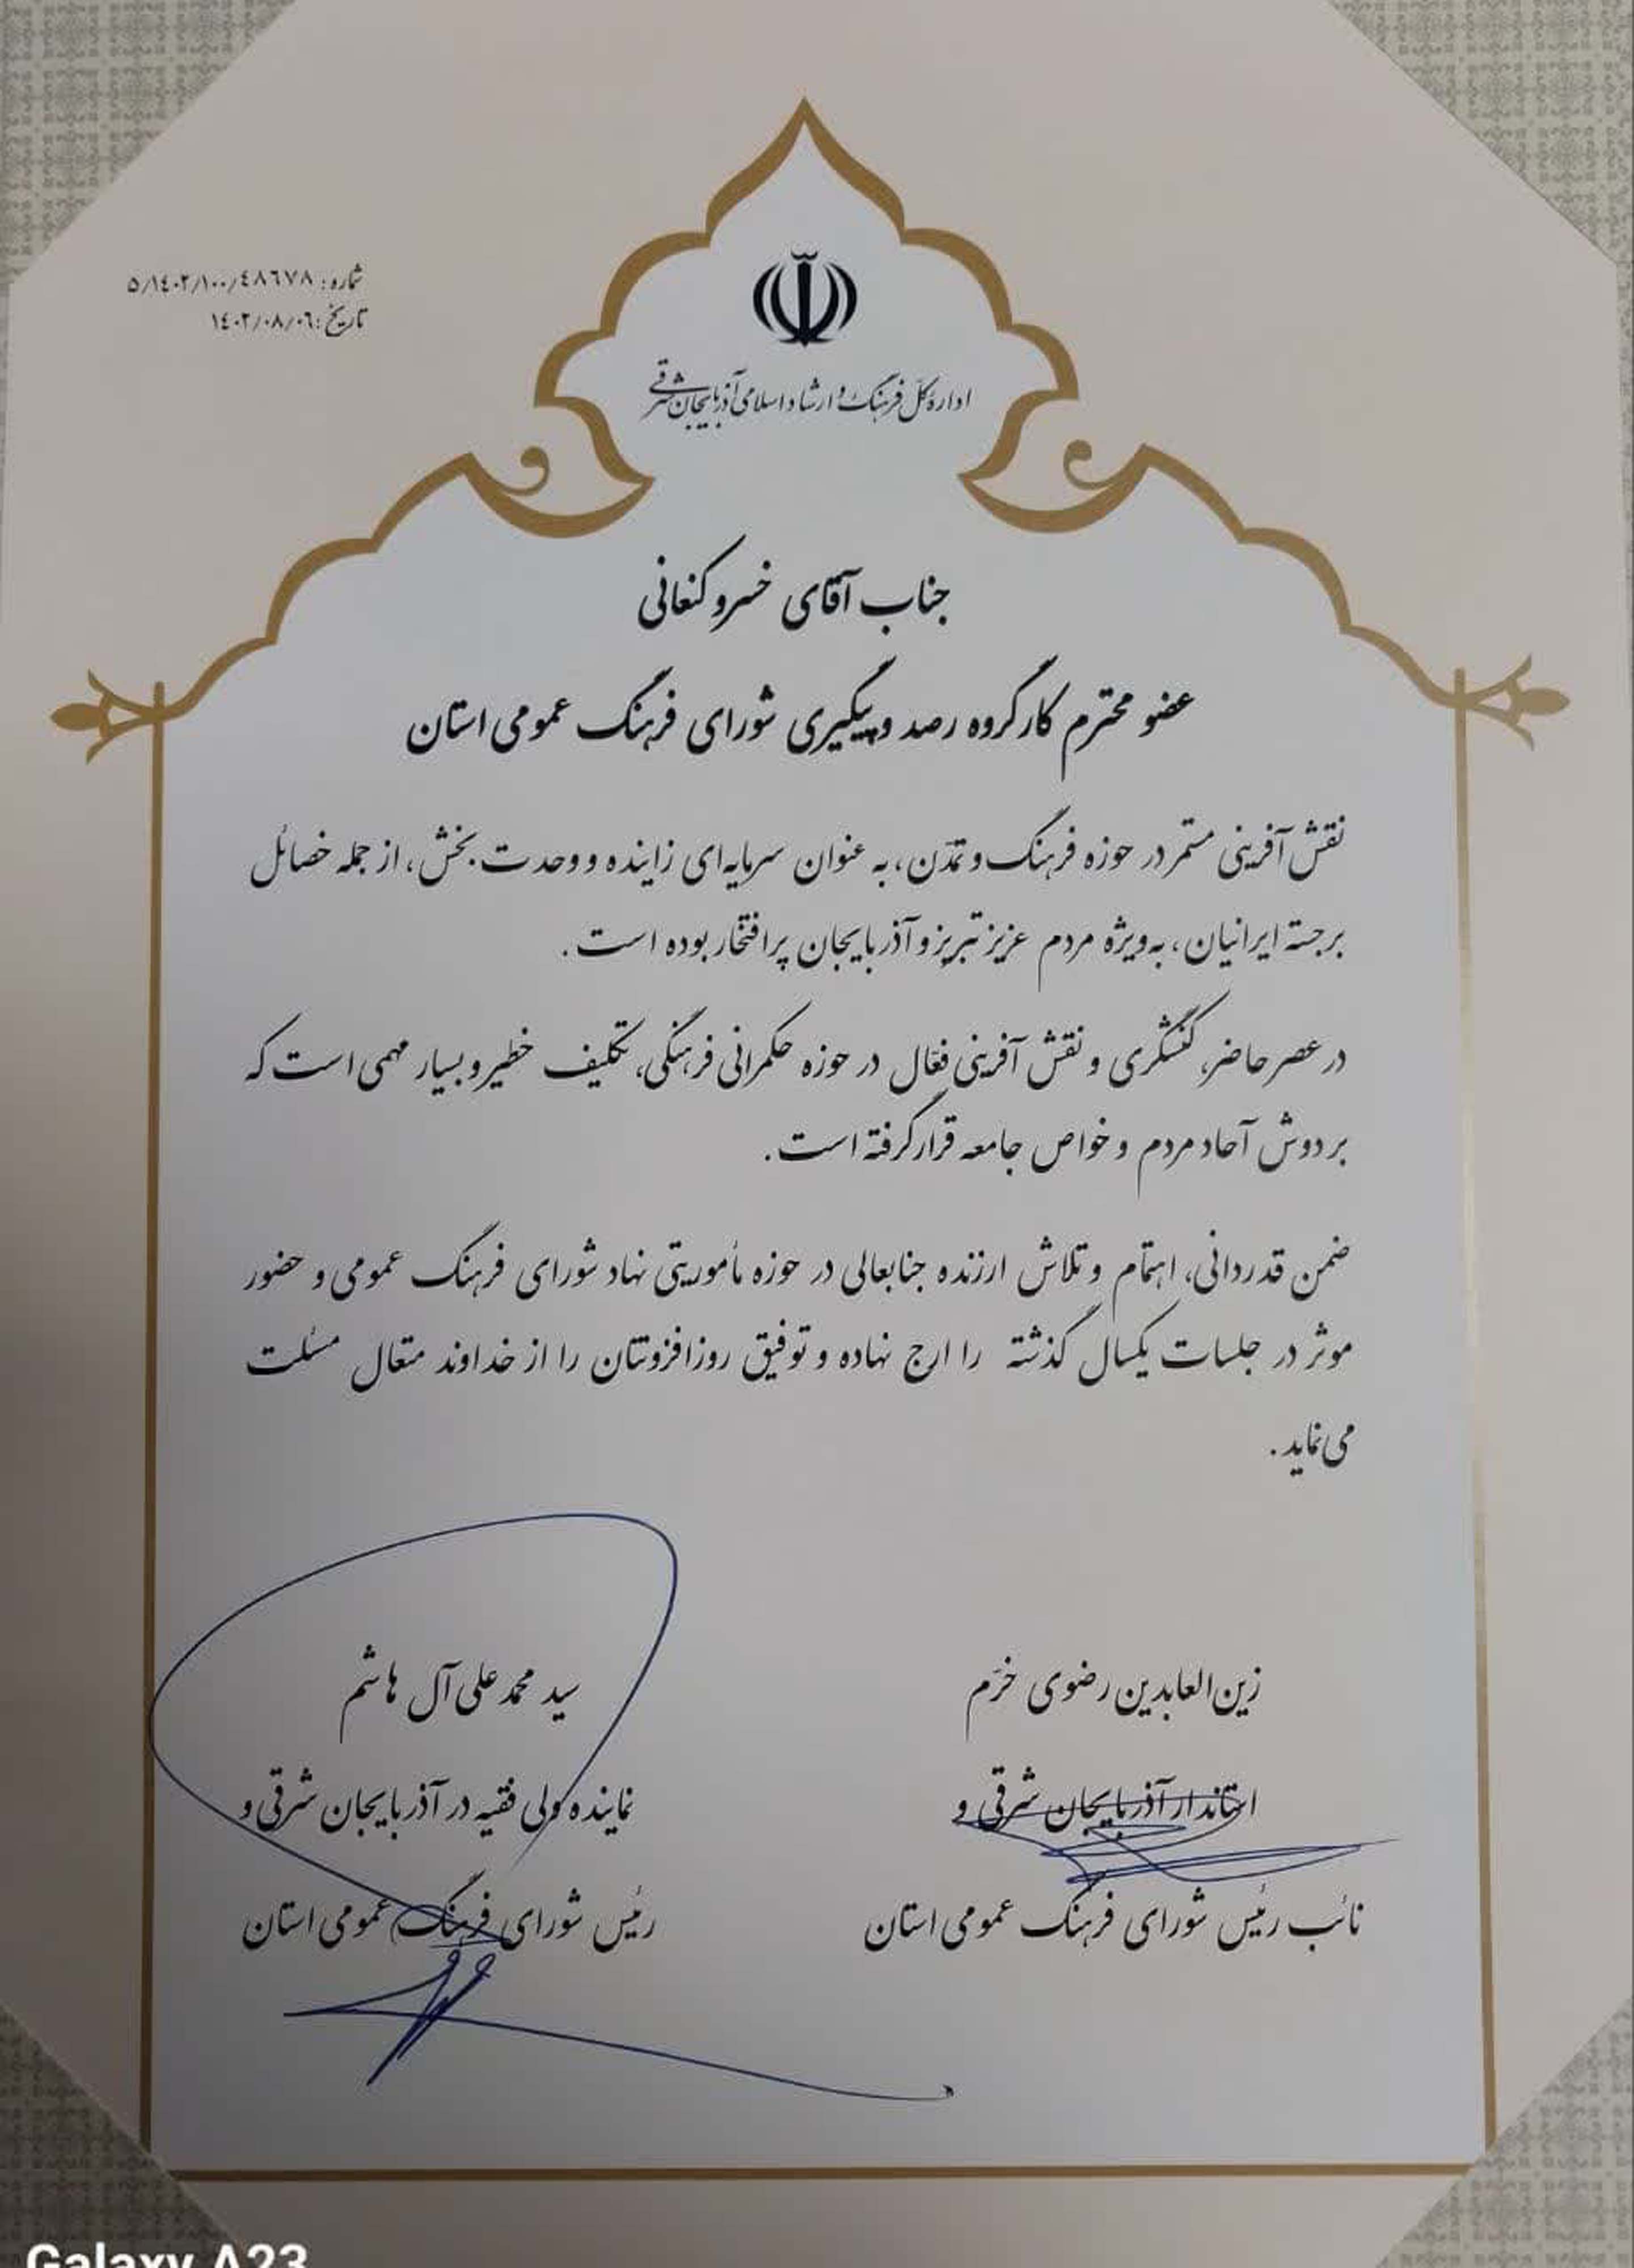 شماره: ۵/۱٤۰۲/۱۰۰/٤۸٦۷۸
تاریخ: ۱٤۰۲/۰۸/۰٦
ادارهٔ کل فرهنگ و ارشاد اسلامی آذربایجان شرقی
جناب آقای خسرو کنعانی
عضو محترم کارگروه رصد و پیگیری شورای فرهنگ عمومی استان
نقش آفرینی مستمر در حوزه فرهنگ و تمدّن، به عنوان سرمایه‌ای زاینده و وحدت بخش، از جمله خصائل
برجسته ایرانیان، به‌ویژه مردم عزیز تبریز و آذربایجان پرافتخار بوده است.
در عصر حاضر، کنشگری و نقش آفرینی فعّال در حوزه حکمرانی فرهنگی، تکلیف خطیر و بسیار مهمی است که
بر دوش آحاد مردم و خواص جامعه قرار گرفته است.
ضمن قدردانی، اهتمام و تلاش ارزنده جنابعالی در حوزه مأموریتی نهاد شورای فرهنگ عمومی و حضور
موثر در جلسات یکسال گذشته را ارج نهاده و توفیق روزافزونتان را از خداوند متعال مسئلت
می‌نماید.
زین‌العابدین رضوی خرّم
استاندار آذربایجان شرقی و
نائب رئیس شورای فرهنگ عمومی استان
سید محمد علی آل هاشم
نماینده ولی فقیه در آذربایجان شرقی و
رئیس شورای فرهنگ عمومی استان
Galaxy A23